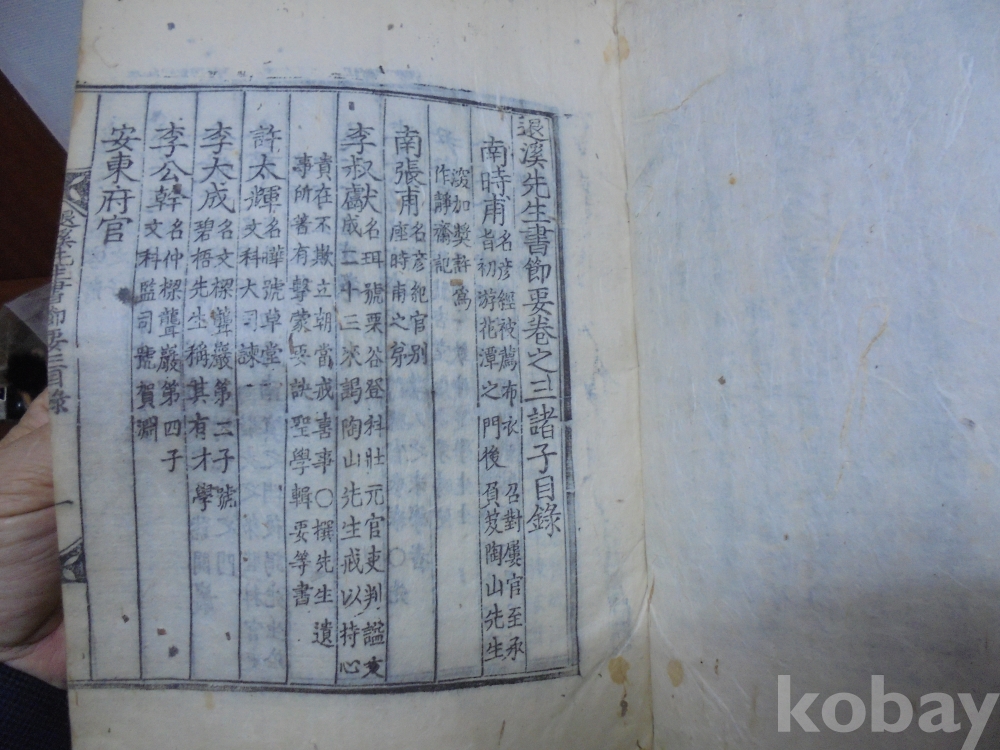 退溪先生書節要卷之三諸子目錄
南時甫 名彦經被薦布衣 召對屢官至承
旨初游花潭之門後負笈陶山先生
深加獎許爲
作靜齋記
南張甫 名彦紀官別
座時甫之弟
李叔獻 名珥號栗谷登科壯元官吏判諡文
成二十三來謁陶山先生戒以持心
貴在不欺立朝當戒喜事○撰先生遺
事所著有擊蒙要訣聖學輯要等書
許太輝 名曄號草堂
文科大司諫
李大成 名文樑聾巖第二子號
碧梧先生稱其有才學
李公幹 名仲樑聾巖第四子
文科監司號賀淵
安東府官
退溪先生書節要三目錄 一
kobay